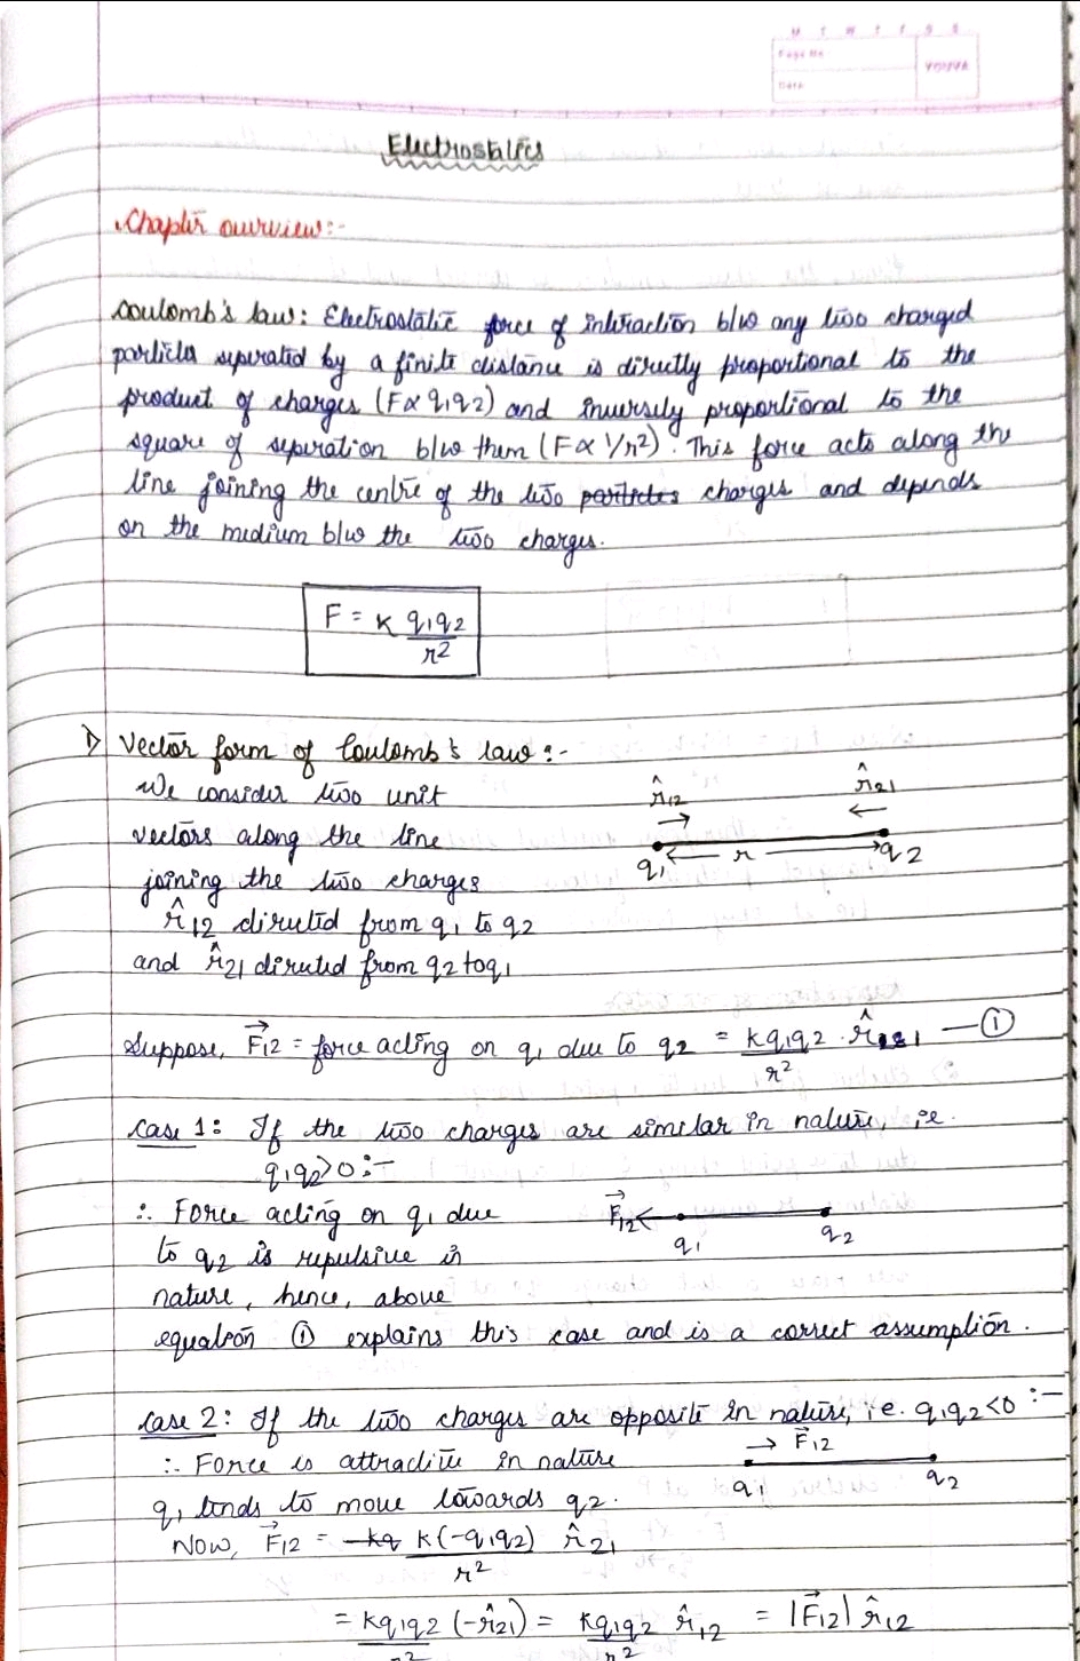 M T W T F S S
Page No.
YOUVA
Date
Electrostatics
Chapter overview:-
Coulomb's law: Electrostatic force of interaction b/w any two charged
particles seperated by a finite distance is directly proportional to the
product of charges (F∝ q₁q₂) and inversely proportional to the
square of seperation b/w them (F∝ 1/r²). This force acts along the
line joining the centre of the two particles charges and depends
on the medium b/w the two charges.
F = K q₁q₂/r²
1) Vector form of Coulomb's law :-
We consider two unit
vectors along the line
joining the two charges
r̂₁₂ directed from q₁ to q₂
and r̂₂₁ directed from q₂ to q₁
r̂₁₂ → r̂₂₁ ←
q₁ ← r → q₂
Suppose, F⃗₁₂ = force acting on q₁ due to q₂ = kq₁q₂/r² . r̂₂₁ — ①
Case 1: If the two charges are similar in nature, ie.
q₁q₂>0 :-
∴ Force acting on q₁ due
to q₂ is repulsive in
nature, hence, above
F⃗₁₂ ← q₁ q₂
equation ① explains this case and is a correct assumption.
Case 2: If the two charges are opposite in nature, i.e. q₁q₂<0 :-
∴ Force is attractive in nature
→ F⃗₁₂
q₁ q₂
q₁ tends to move towards q₂.
Now, F⃗₁₂ = -kq K(-q₁q₂)/r² r̂₂₁
= Kq₁q₂/r² (-r̂₂₁) = Kq₁q₂/r² r̂₁₂ = |F⃗₁₂| r̂₁₂